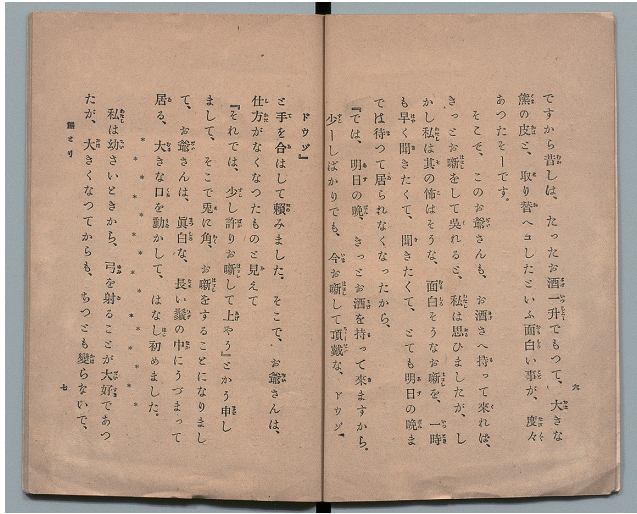 ですから昔しは、たったお酒一升でもつて、大きな
熊の皮と、取り替へコしたといふ面白い事が、度々
あつたそーです。
そこで、このお爺さんも、お酒さへ持って来れば、
きっとお噺をして呉れると、私は思ひましたが、し
かし私は其の怖はそうな、面白そうなお噺を、一時
も早く聞きたくて、聞きたくて、とても明日の晩ま
では待つて居られなくなったから、
『では、明日の晩、きっとお酒を持って来ますから。
少ーしばかりでも、今お噺して頂戴な、ドウゾ。
六
ドウゾ』
と手を合はして頼みました、そこで、お爺さんは、
仕方がなくなつたものと見えて
『それでは、少し許りお噺して上やう』とかう申し
まして、そこで兎に角、お噺をすることになりまし
て、お爺さんは、眞白な、長い鬚の中にうづまって
居る、大きな口を動かして、はなし初めました。
* * * * * * * * * *
私は幼さいときから、弓を射ることが大好であつ
たが、大きくなつてからも、ちつとも變らないで、
七